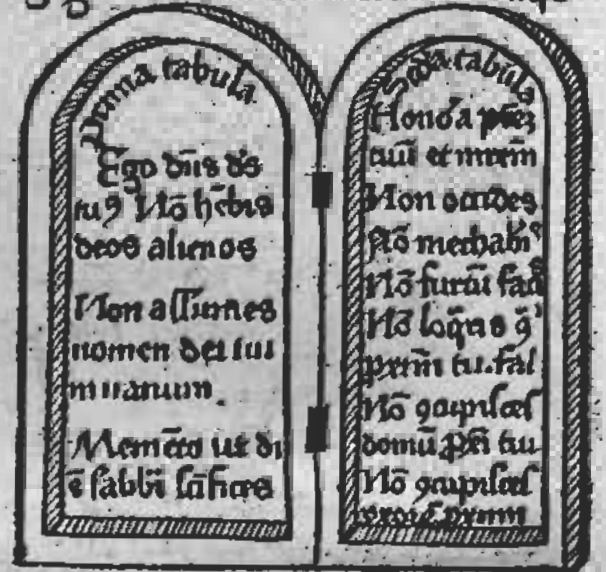 Prima tabula
Ego dñs ds̄
tuꝰ Nō hēbis
deos alienos
Non assumes
nomen dei tui
in uanum.
Memēto ut di
ē sabbī sc̄ifices
Scd̄a tabula
Honora pr̄eꝫ
tuū et mr̄em
Non occides
Nō mechab̄is
Nō furtū fac̄
Nō loq̄ris ꝯ̄
prxm̄ tu. fal
Nō ꝯcupisces
domū prx̄i tui
Nō ꝯcupisces
uxorē prxim